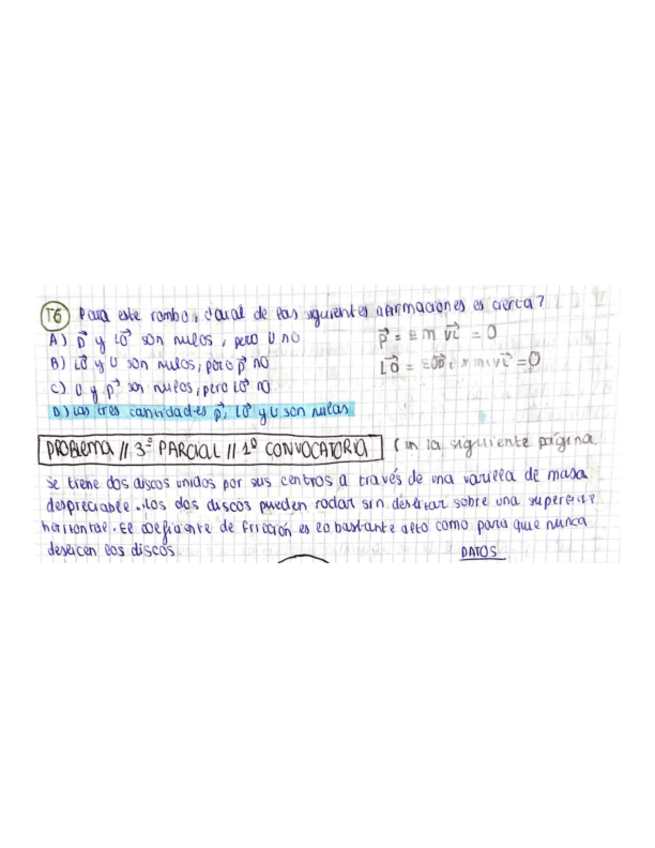 T6 Para este rombo, ¿cual de las siguientes afirmaciones es cierta?
A) p⃗ y LO⃗ son nulos, pero U no
p⃗ = Σ m vi⃗ = 0
B) LO⃗ y U son nulos, pero p⃗ no
LO⃗ = ΣOPi × mi vi⃗ = 0
C) U y p⃗ son nulos, pero LO⃗ no
D) Las tres cantidades p⃗, LO⃗ y U son nulas
PROBLEMA // 3º PARCIAL // 1º CONVOCATORIA
(en la siguiente página
Se tiene dos discos unidos por sus centros a través de una varilla de masa
despreciable. Los dos discos pueden rodar sin deslizar sobre una superficie
horizontal. El coeficiente de fricción es lo bastante alto como para que nunca
deslicen los discos
DATOS